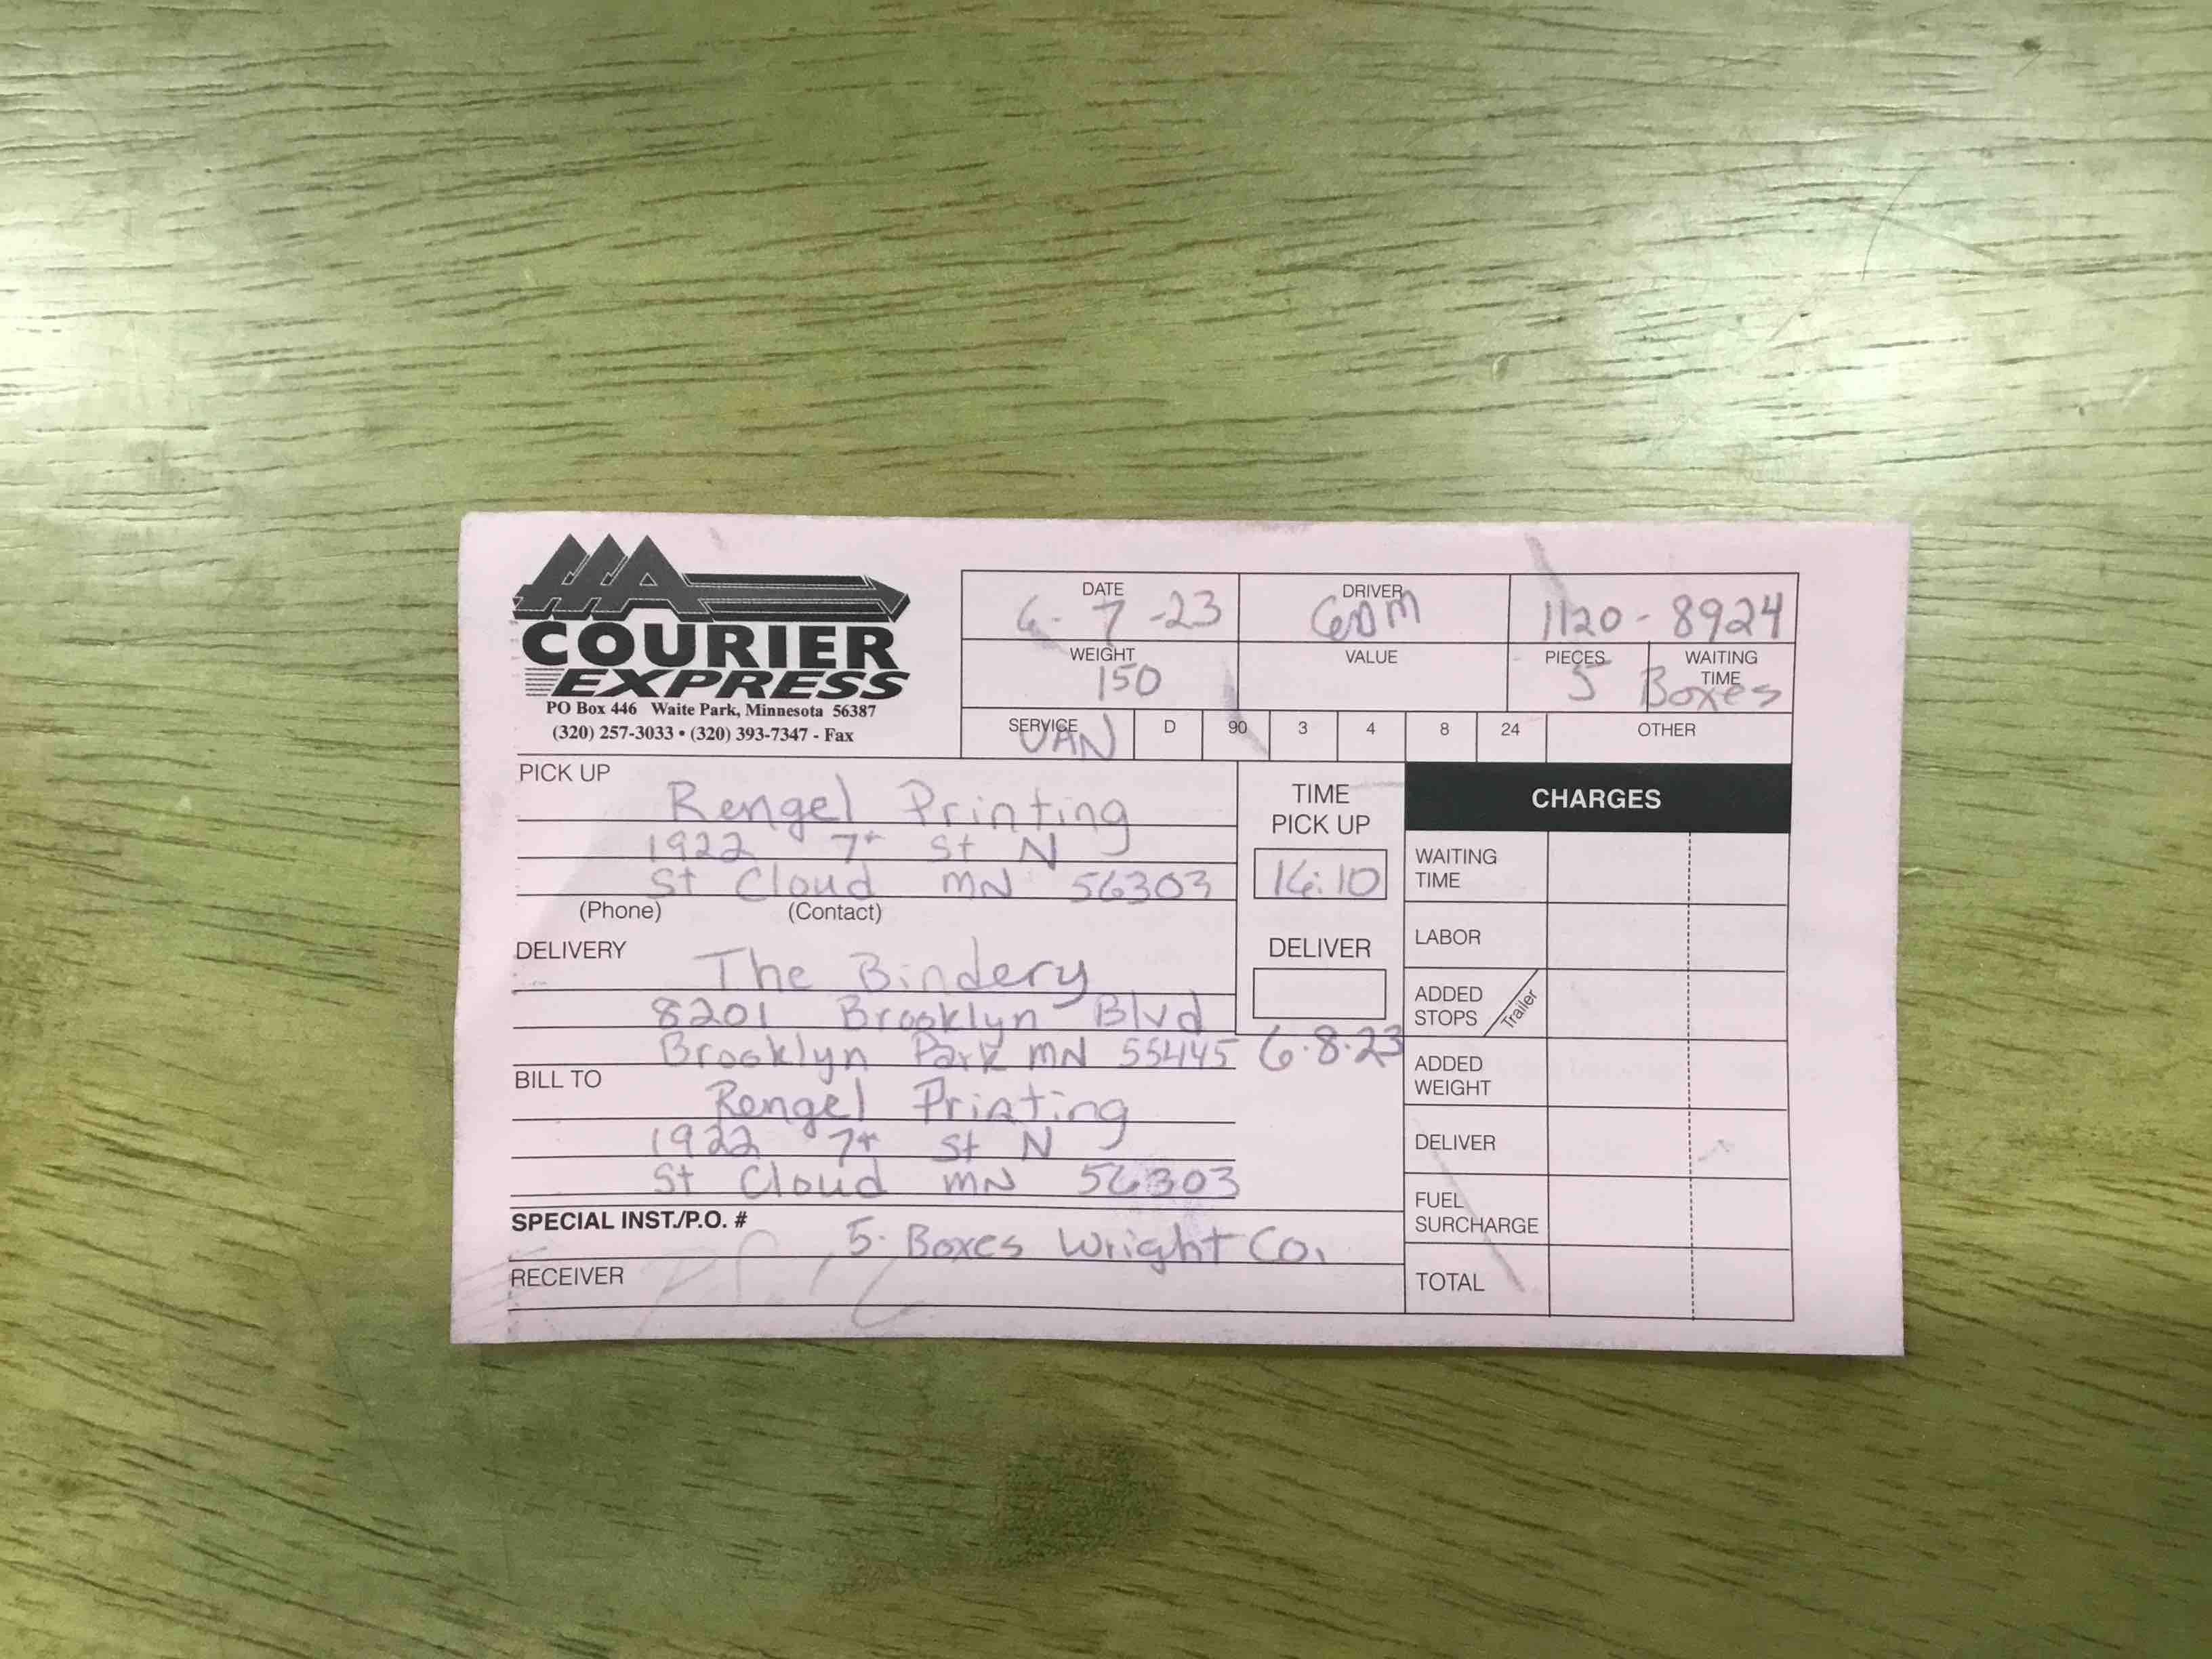 AAA
COURIER
EXPRESS
PO Box 446 Waite Park, Minnesota 56387
(320) 257-3033 • (320) 393-7347 - Fax
DATE
6-7-23
DRIVER
1120-8924
WEIGHT
150
VALUE
PIECES
5 Boxes
WAITING
TIME
SERVICE
VAN
D 90 3 4 8 24 OTHER
PICK UP
Rengel Printing
1922 7th St N
St Cloud MN 56303
(Phone) (Contact)
TIME
PICK UP
DELIVERY
The Bindery
8201 Brooklyn Blvd
Brooklyn Park MN 55445
DELIVER
6.8.23
BILL TO
Rengel Printing
1922 7th St N
St Cloud MN 56303
SPECIAL INST./P.O. #
5. Boxes Wright Co.
RECEIVER
CHARGES
WAITING
TIME
LABOR
ADDED
STOPS
Trailer
ADDED
WEIGHT
DELIVER
FUEL
SURCHARGE
TOTAL